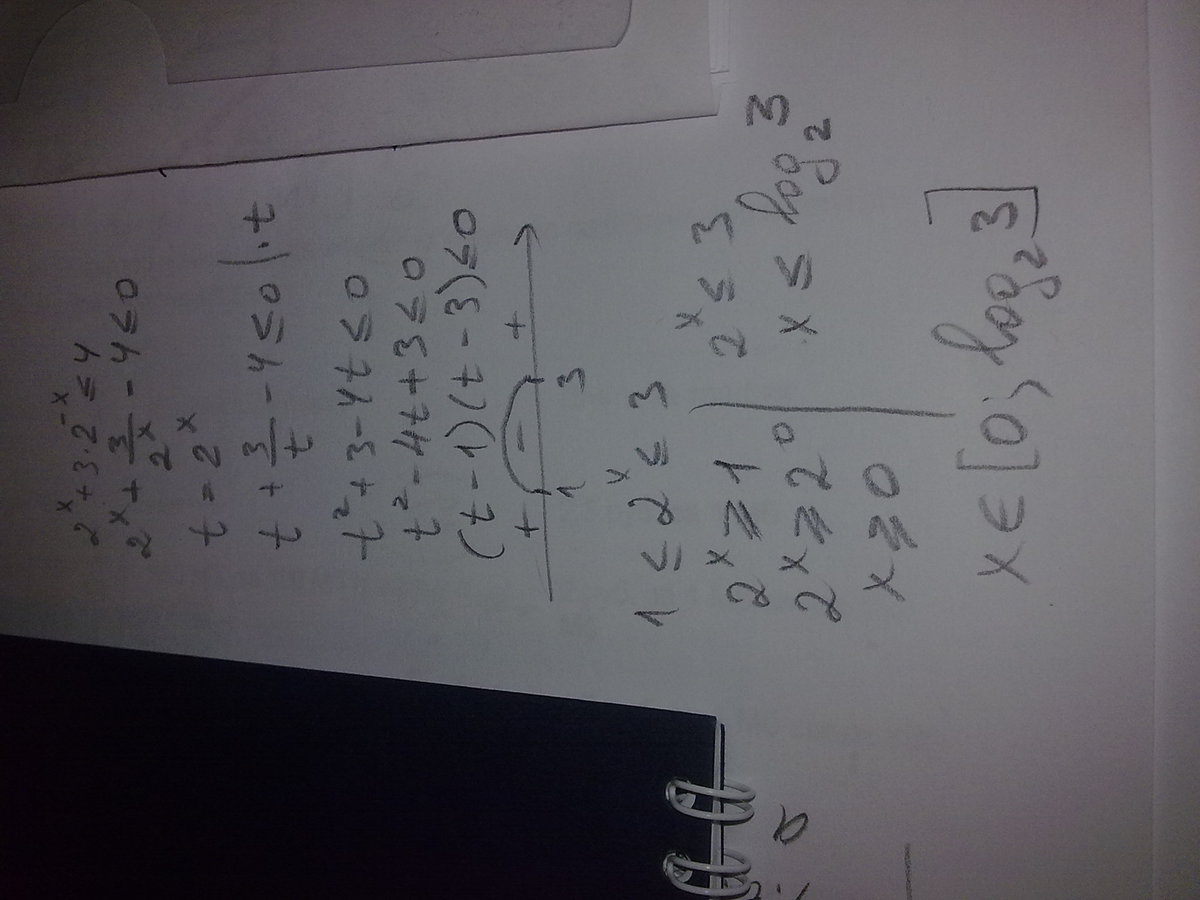 2^x + 3·2^-x ≤ 4
2^x + 3/2^x - 4 ≤ 0
t = 2^x
t + 3/t - 4 ≤ 0 | · t
t² + 3 - 4t ≤ 0
t² - 4t + 3 ≤ 0
(t - 1)(t - 3) ≤ 0
+ - +
1 3
1 ≤ 2^x ≤ 3
2^x ⩾ 1 | 2^x ≤ 3
2^x ⩾ 2^0 | x ≤ log₂ 3
x ⩾ 0
x ∈ [0; log₂ 3]